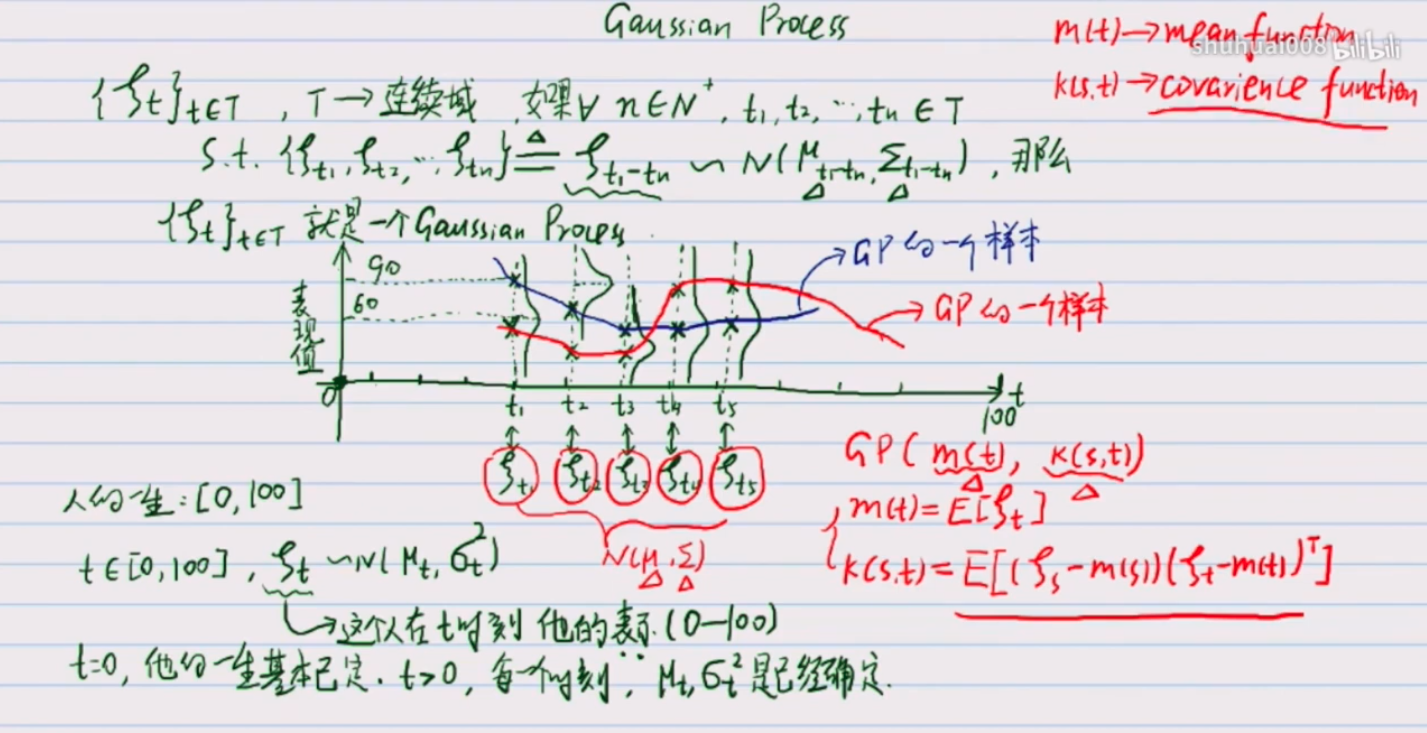 Gaussian Process
m(t)→mean function
shuhuai008 bilibili
k(s,t)→covarience function
{ξt}t∈T , T→连续域 , 如果∀ n∈N⁺, t₁,t₂,…,tn∈T
s.t. {ξt₁,ξt₂,…,ξtn} ≜ ξt₁-tn ~ N(μt₁-tn, Σt₁-tn) , 那么
{ξt}t∈T 就是一个Gaussian Process.
GP的一个样本
GP的一个样本
表现值
90
60
0
t₁ t₂ t₃ t₄ t₅
t
100
ξt₁ ξt₂ ξt₃ ξt₄ ξt₅
N(μ,Σ)
GP(m(t), k(s,t))
m(t)=E[ξt]
k(s,t)=E[(ξs-m(s))(ξt-m(t))ᵀ]
人的一生:[0,100]
t∈[0,100] , ξt ~N(μt, σt²)
→这个人在t时刻 他的表现.(0—100)
t=0, 他的一生基本已定. t>0, 每一个时刻, μt,σt²是已经确定.